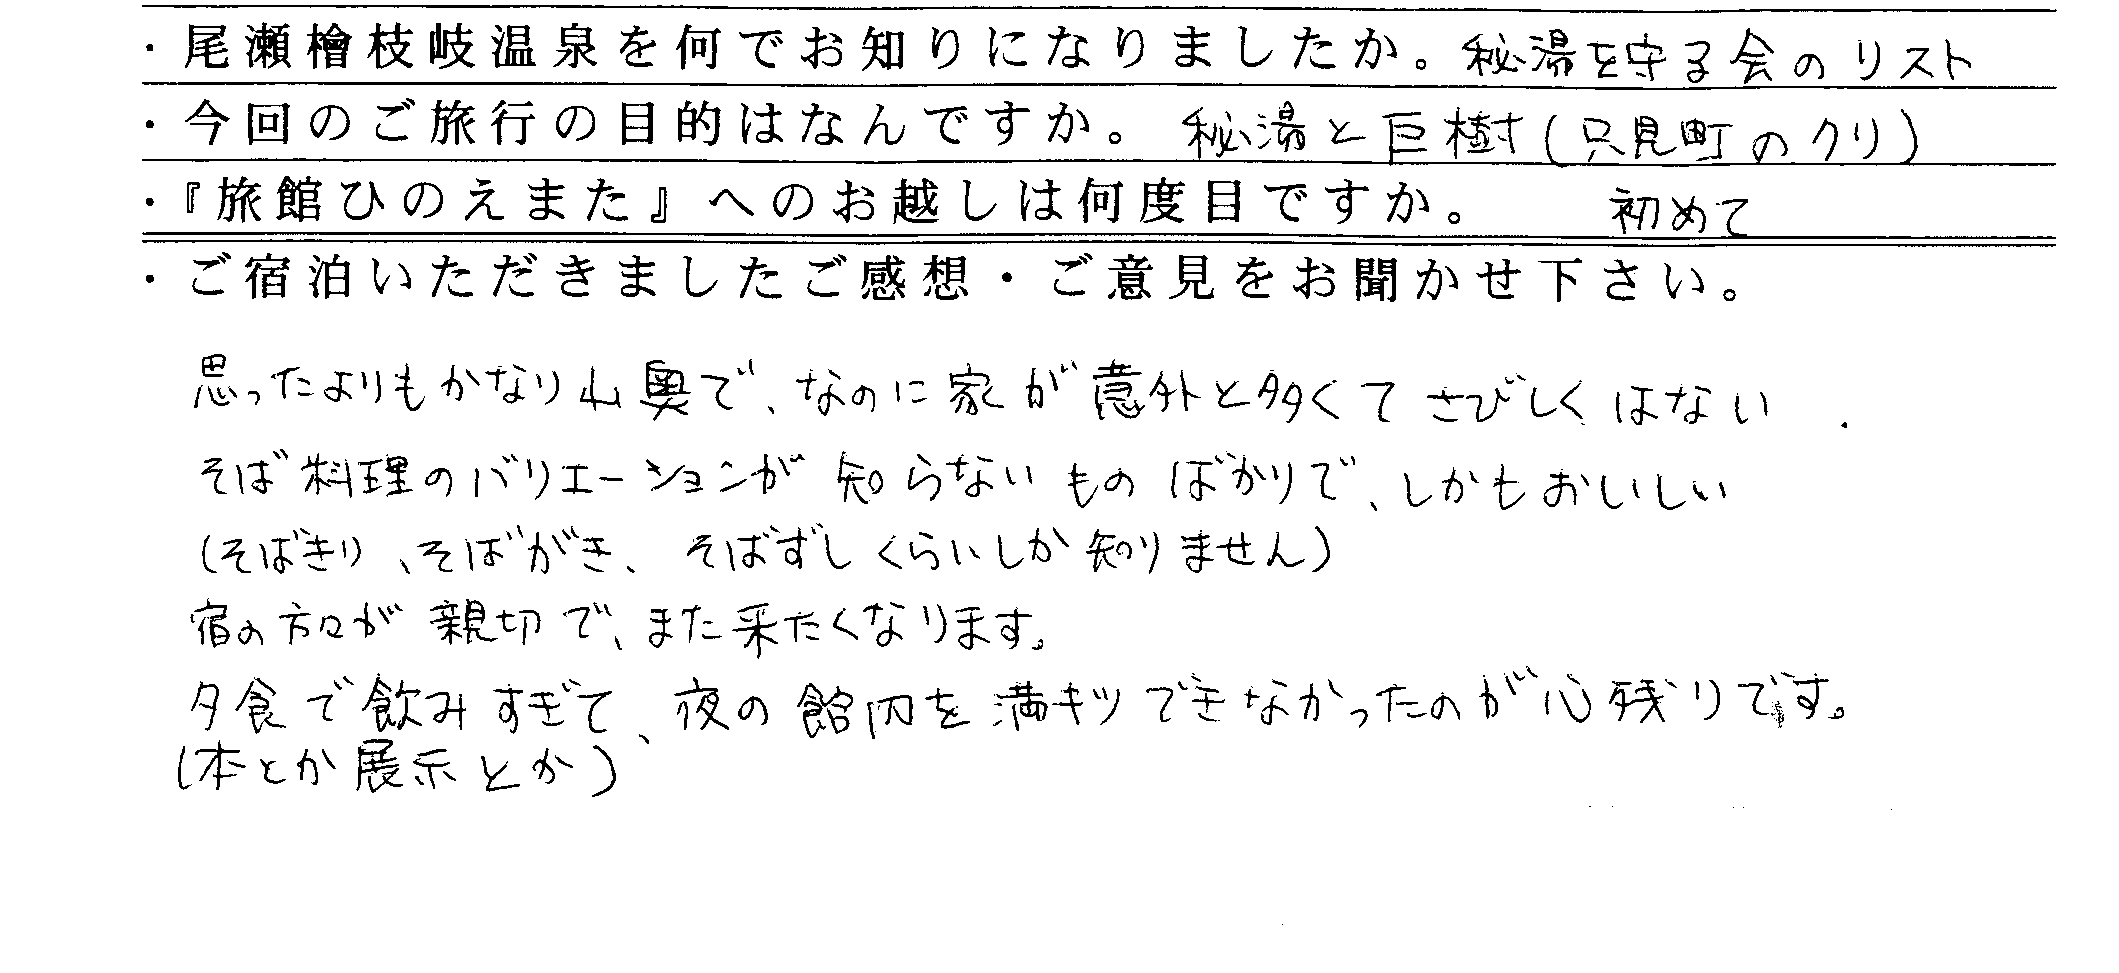 ・尾瀬檜枝岐温泉を何でお知りになりましたか。秘湯を守る会のリスト
・今回のご旅行の目的はなんですか。秘湯と巨樹(只見町のクリ)
・『旅館ひのえまた』へのお越しは何度目ですか。 初めて
・ご宿泊いただきましたご感想・ご意見をお聞かせ下さい。
思ったよりもかなり山奥で、なのに家が意外と多くてさびしくはない.
そば料理のバリエーションが知らないものばかりで、しかもおいしい
(そばきり、そばがき、そばずしくらいしか知りません)
宿の方々が親切で、また来たくなります。
夕食で飲みすぎて、夜の館内を満キツできなかったのが心残りです。
(本とか展示とか)